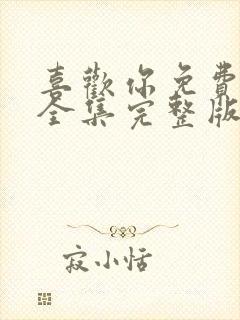 喜歡你免費
全集完整版
寂小恬